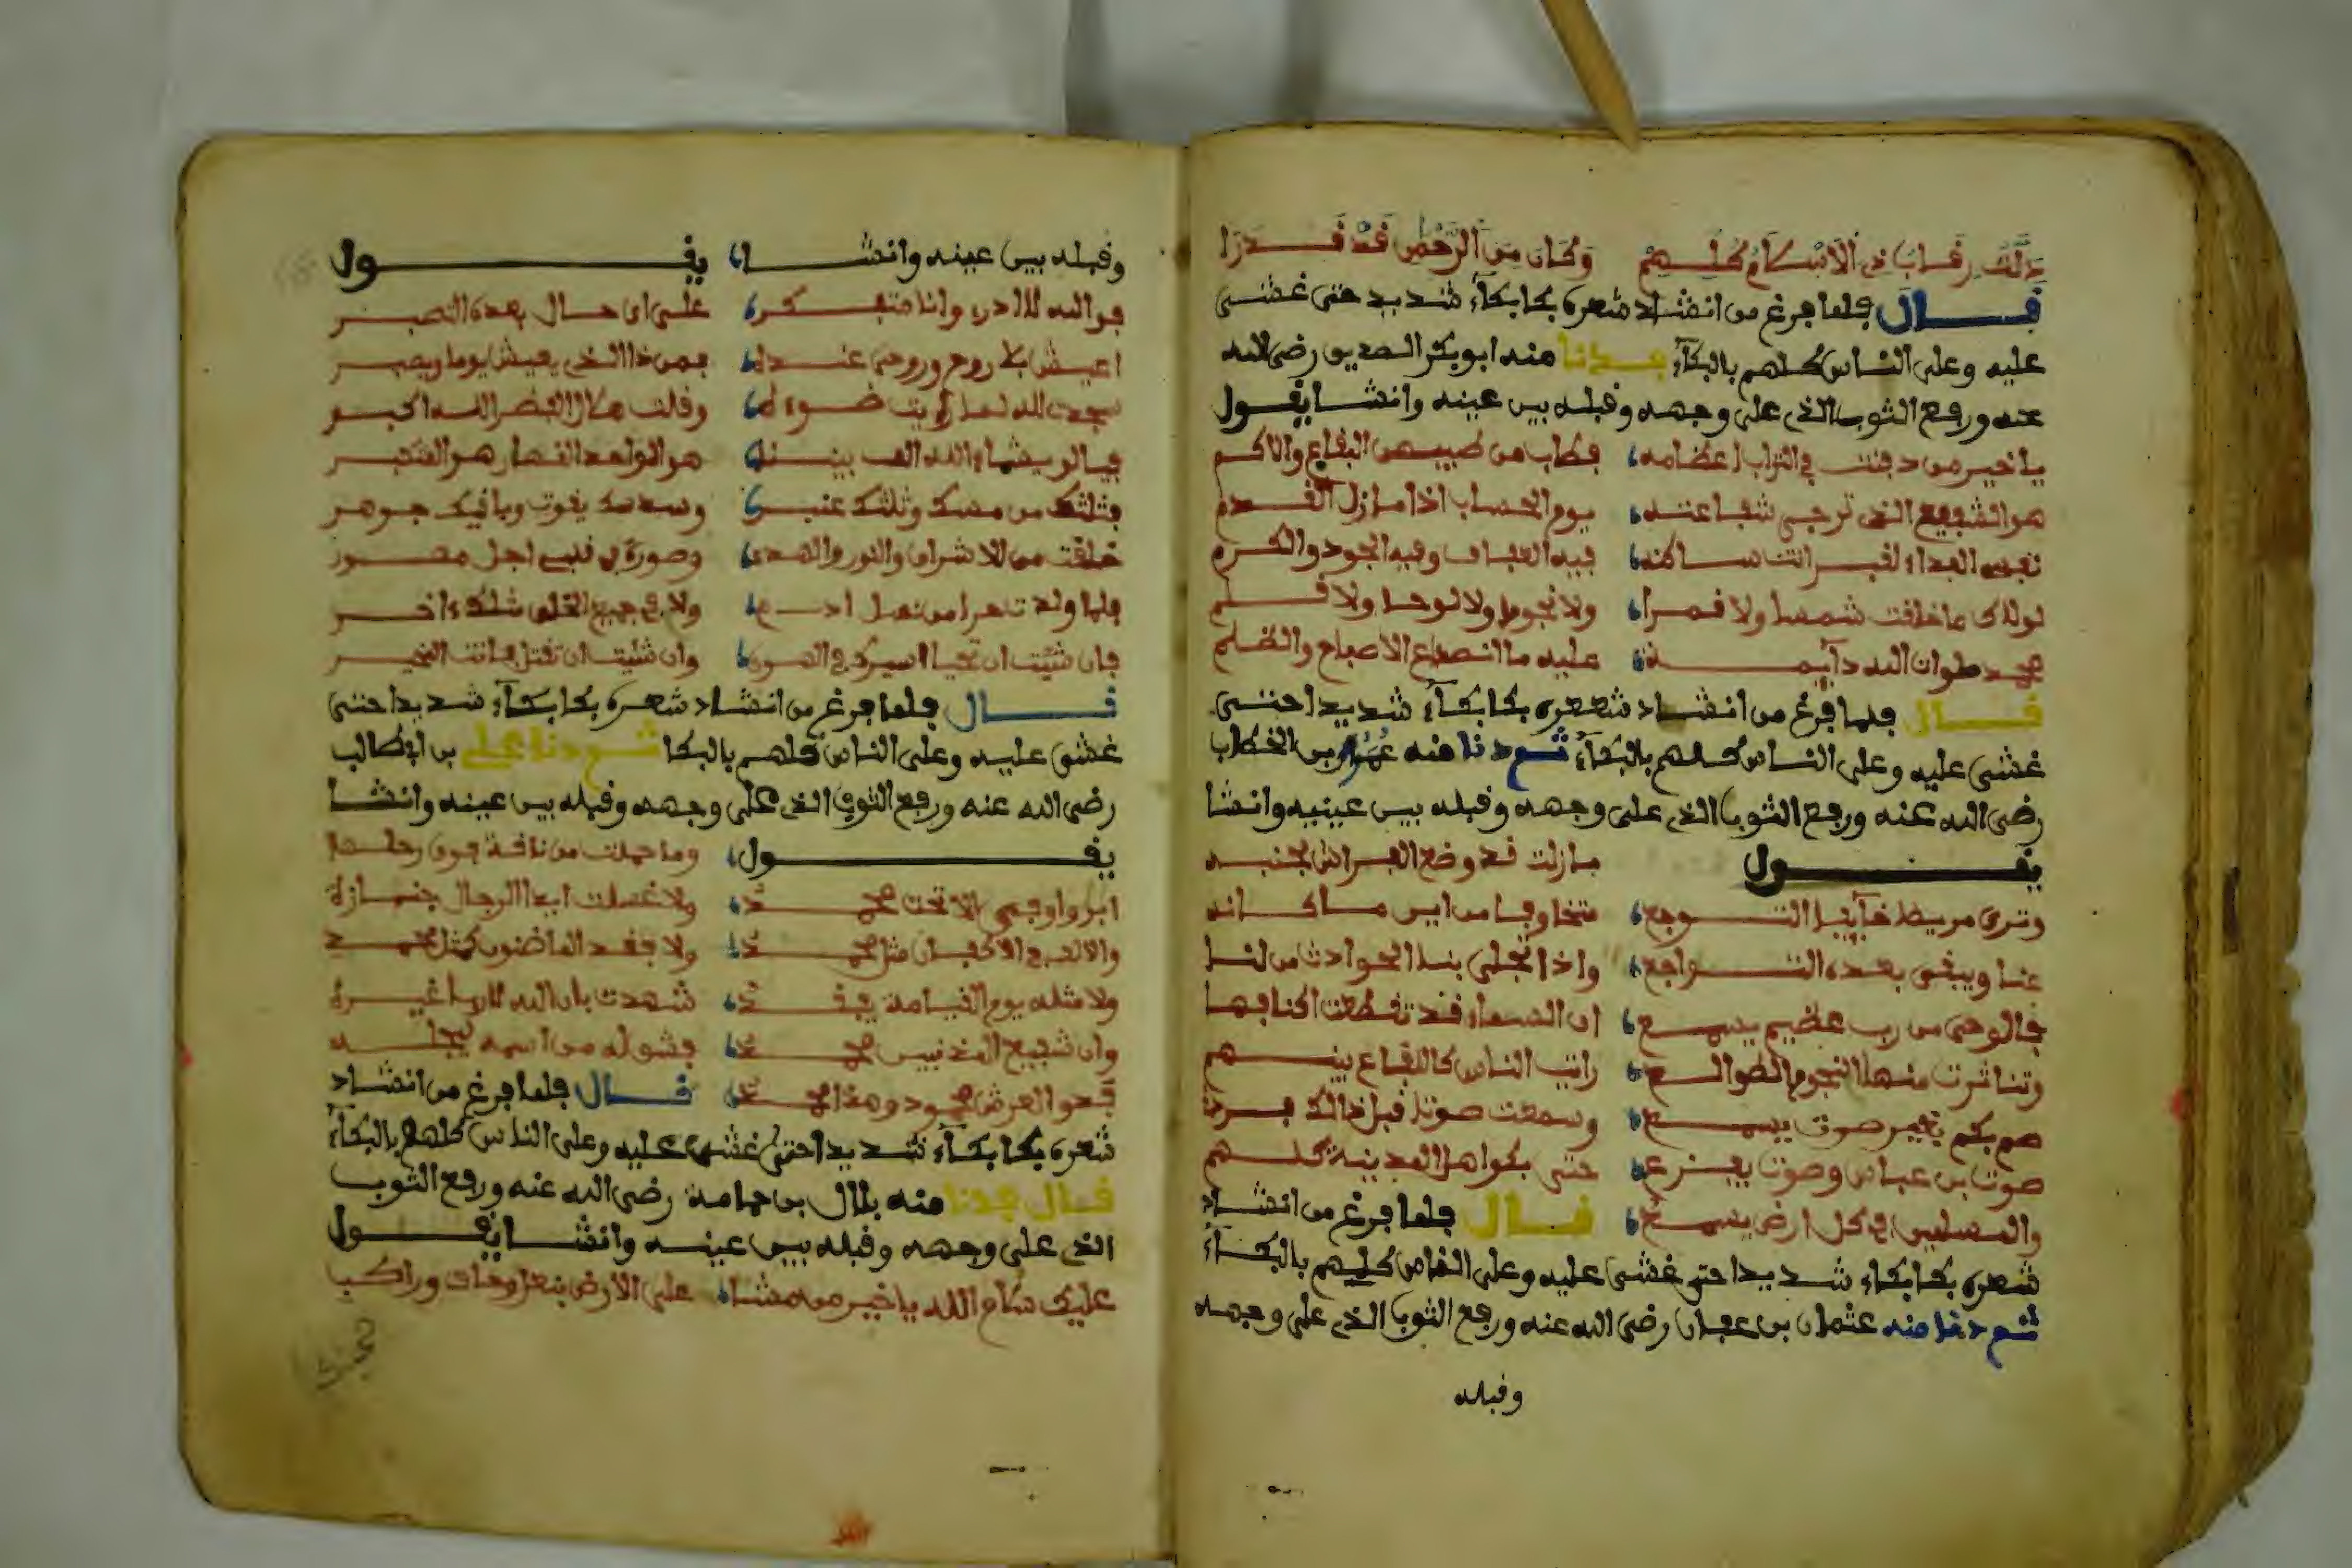 ذلت رقاب ذي الاسلام كلهم وكان من الرحمن قد قدرا
قال فلما فرغ من انشاد شعره بكا بكاء شديد حتى غشى
عليه وعلى الناس كلهم بالبكاء فدنا منه ابو بكر الصديق رضى الله
عنه ورفع الثوب الذى على وجهه وقبله بين عينه وانشا يقول
يا خير من دفنت في التراب اعضامه فطاب من طيبهن البقاع والاكم
هو الشفيع الذى ترجى شفاعته يوم الحساب اذا ما زل القدم
نفسى الفداء لقبر انت ساكنه فيه العفاف وفيه الجود والكرم
لولاك ما خلقت شمسا ولا قمرا ولا نجوما ولا لوحا ولا قلم
محمد صلوان الله دآيمة عليه ما انصداع الاصباح والظلم
قال فلما فرغ من انشاد شعره بكا بكاء شديدا حتى
غشى عليه وعلى الناس كلهم بالبكاء ثم دنا منه عمر بن الخطاب
رضى الله عنه ورفع الثوب الذى على وجهه وقبله بين عينيه وانشا
يقول مازلت قد وضع الفراش لجنبه
وترى مريضا خآيفا التوجع متخاوفا من اين ما كانه
عنا ويبقى بعده التواجع واذا تجلى بنا الحوادث من لنا
فالوحى من رب عظيم يسمع ان السماء قد تقطعت اكنافها
وتناثرت منها النجوم الطوالع رايت الناس كالبقاع بينهم
صم بكم بغير صوت يسمع وسمعت صوتا قبل ذالك
صوت بن عباس وصوت يفزع حتى بكوا هل المدينة كلهم
والمسلمين في كل ارض يسمع قال فلما فرغ من انشاد
شعره بكا بكاء شديدا حتى غشى عليه وعلى الناس كلهم بالبكاء
ثم دنا منه عثمان بن عفان رضى الله عنه ورفع الثوب الذى على وجهه
وقبله
وقبله بين عينه وانشا يقول
فوالله لا ادرى وانا متفكر على اى حال بعده النصبر
اعيش بلا روح وروحى عنده فمن ذا الذى يعيش يوما ويصبر
سجدت لله لما رايت ضوءه وقلت هلال القصر الله اكبر
فيا لو يشاء الله الف بيننا هو الواحد القهار هو المتجبر
فثلثك من مسك وثلثك عنبر وسدسك يقوت وباقيك جوهر
خلقت من الاشراق والنور والهدى وصورة في قلبى اجل مصور
فلما ولد تدهرا من نسل ادم ولا في جميع الخلق مثلك ءاخر
فان شئت ان تحيا اسيرك في الهوى وان شئت ان تقتل فانت المخير
قال فلما فرغ من انشاد شعره بكا بكاء شديدا حتى
غشى عليه وعلى الناس كلهم بالبكا ثم دنا على بن ابطالب
رضى الله عنه ورفع الثوب الذى على وجهه وقبله بين عينه وانشا
يقول وما حملت من ناقة فوق رحلها
ابر واوفى الا تحت محمد ولا غسلت ايدا الرجال جنازة
ولا فقد الماضون كمثل محمد
ولا مثله يوم القيامة يفقد شهدت بان الله لا ربا غيره
وان شفيع المذنبين محمد فشق له من اسمه ليجله
فذو العرش محمود وهذا محمد قال فلما فرغ من انشاد
شعره بكا بكاء شديدا حتى غشى عليه وعلى الناس كلهم بالبكاء
قال فدنا منه بلال بن حمامة رضى الله عنه ورفع الثوب
الذى على وجهه وقبله بين عينه وانشا يقول
عليك سلام الله يا خير من مشا على الارض وراكب